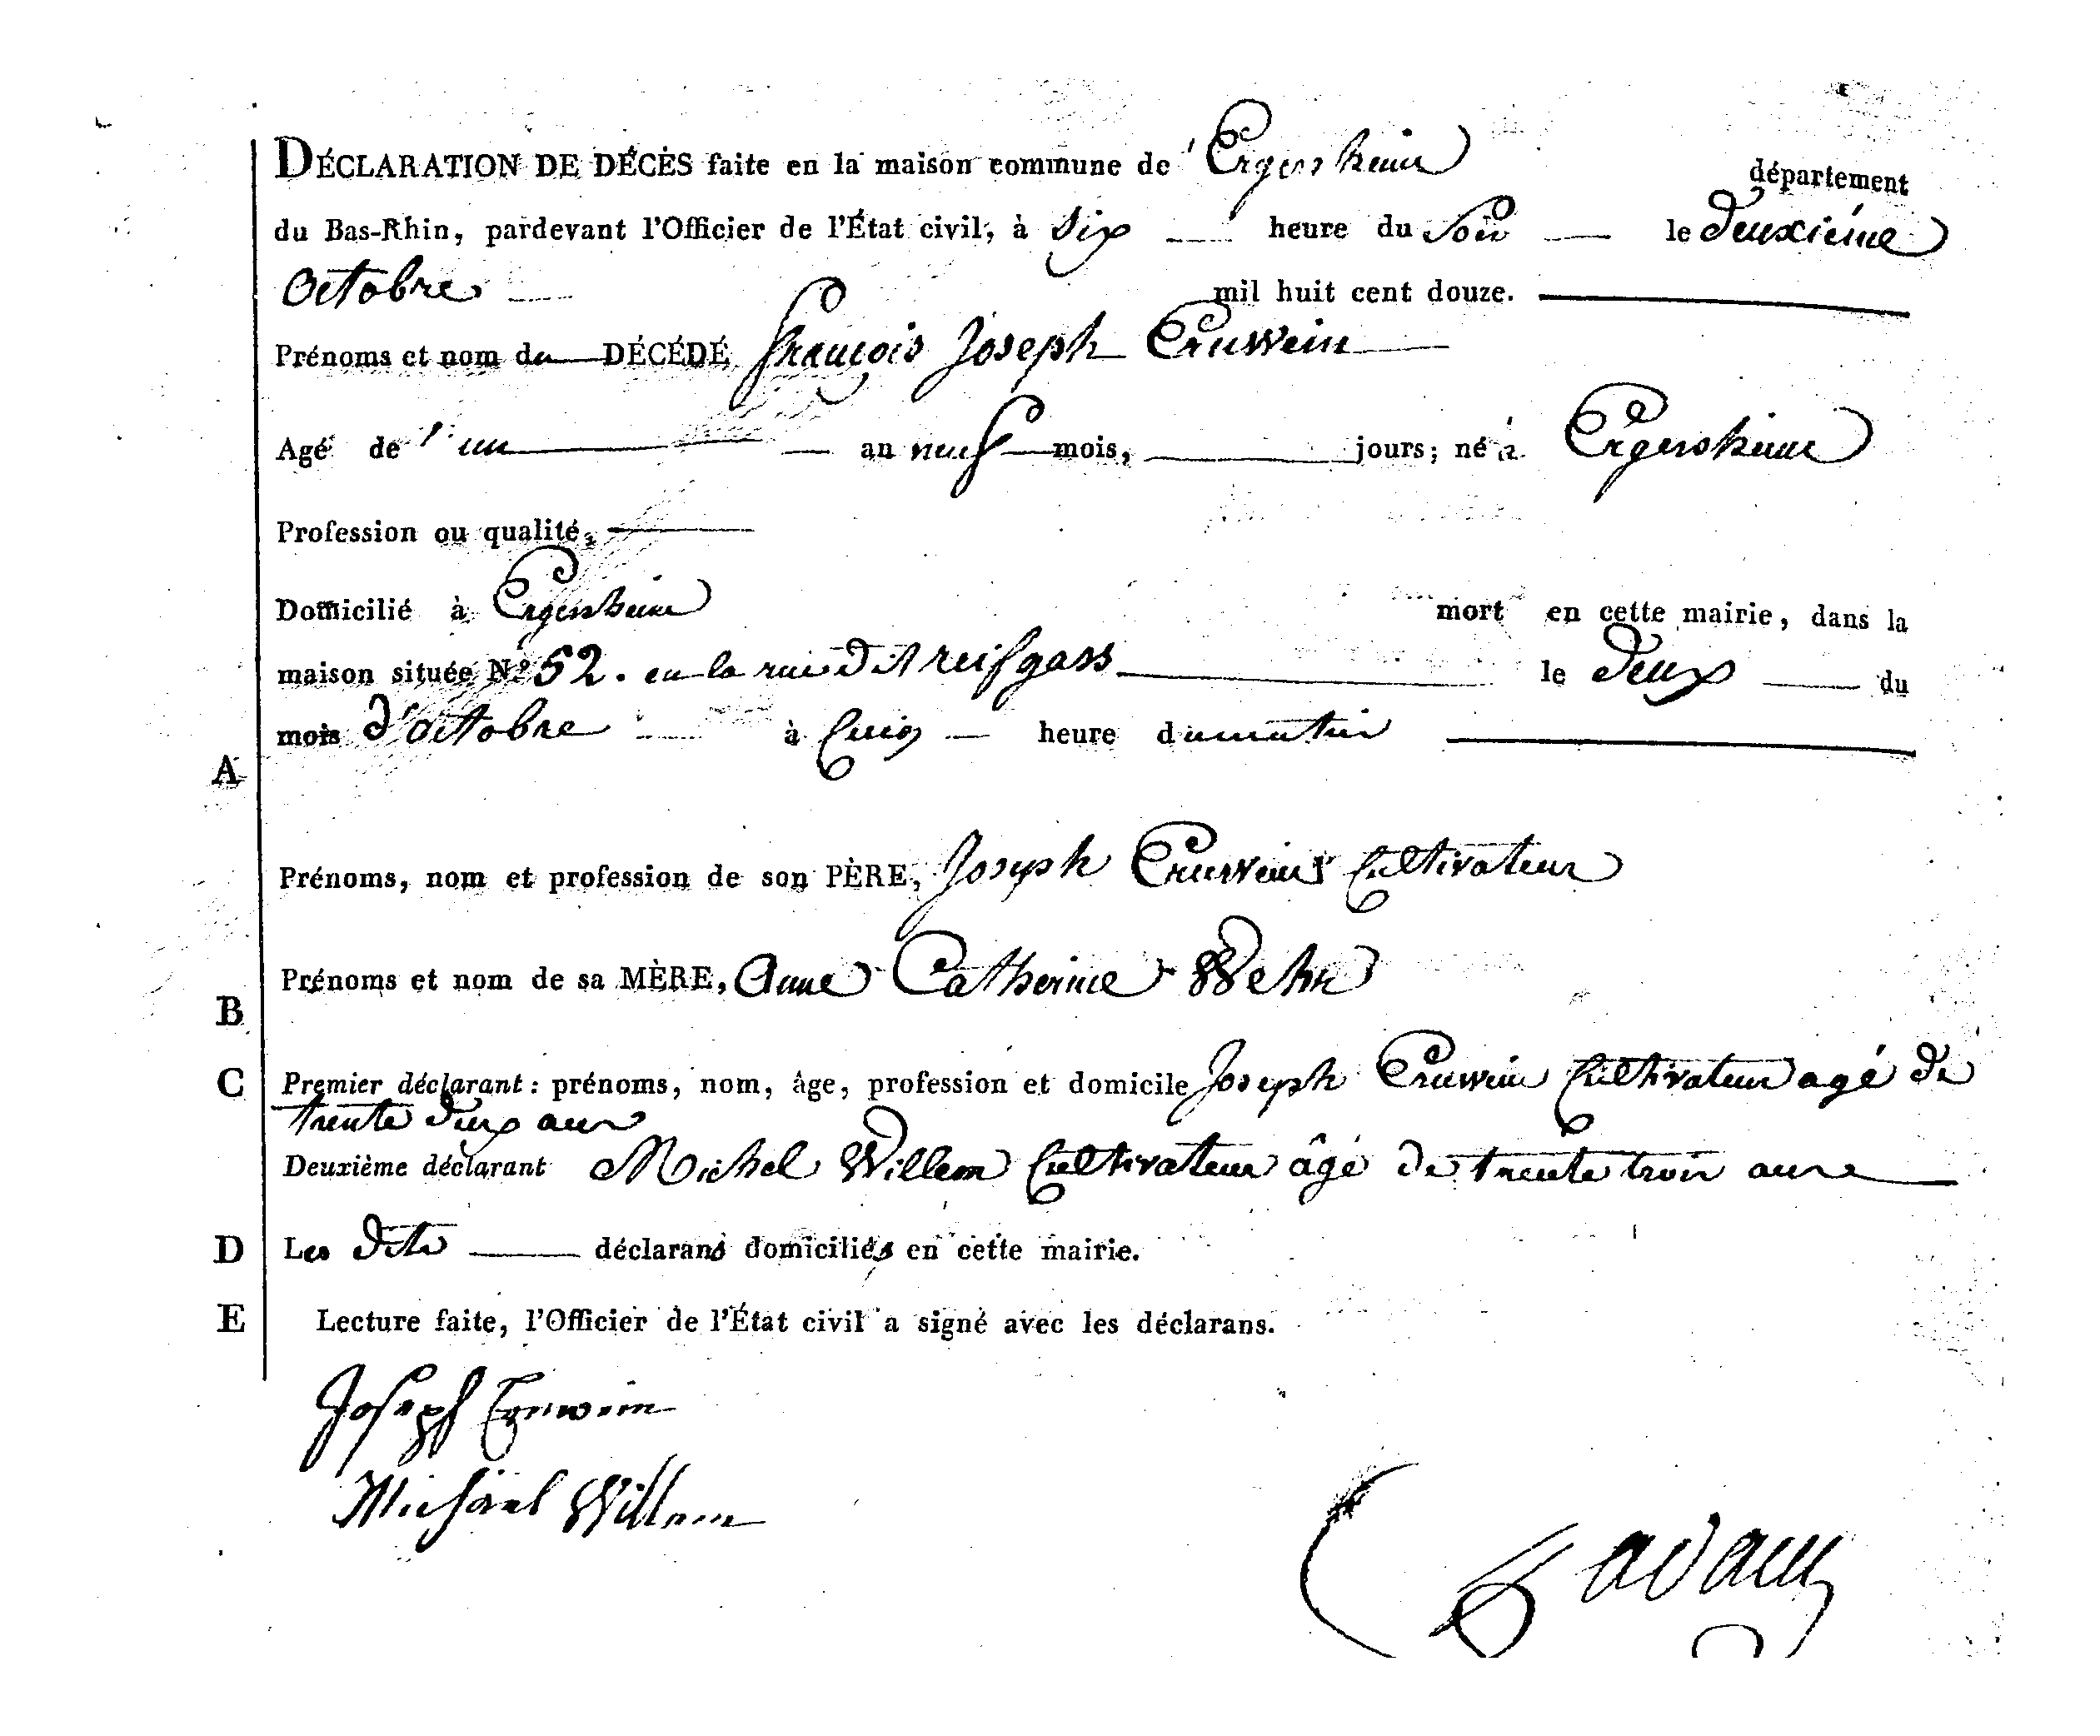 DÉCLARATION DE DÉCÈS faite en la maison commune de Ergersheim département
du Bas-Rhin, pardevant l'Officier de l'État civil, à six heure du Soir le deuxiéme
Octobre mil huit cent douze.
Prénoms et nom du DÉCÉDÉ françois Joseph Eruwein
Agé de un an neuf mois, jours; né à Ergersheim
Profession ou qualité,
Domicilié à Ergersheim mort en cette mairie, dans la
maison située N.o 52. en la rue dit reifgass le deux du
mois d'octobre à Cinq heure du matin
A
Prénoms, nom et profession de son PÈRE, Joseph Eruwein Cultivateur
Prénoms et nom de sa MÈRE, Anne Catherine Wehr
B
C Premier déclarant: prénoms, nom, âge, profession et domicile Joseph Eruwein Cultivateur agé de
trente deux ans
Deuxième déclarant Michel Willem Cultivateur âgé de trente trois ans
D Les dits déclarans domiciliés en cette mairie.
E Lecture faite, l'Officier de l'État civil a signé avec les déclarans.
Joseph Eruwein
Michael Willem